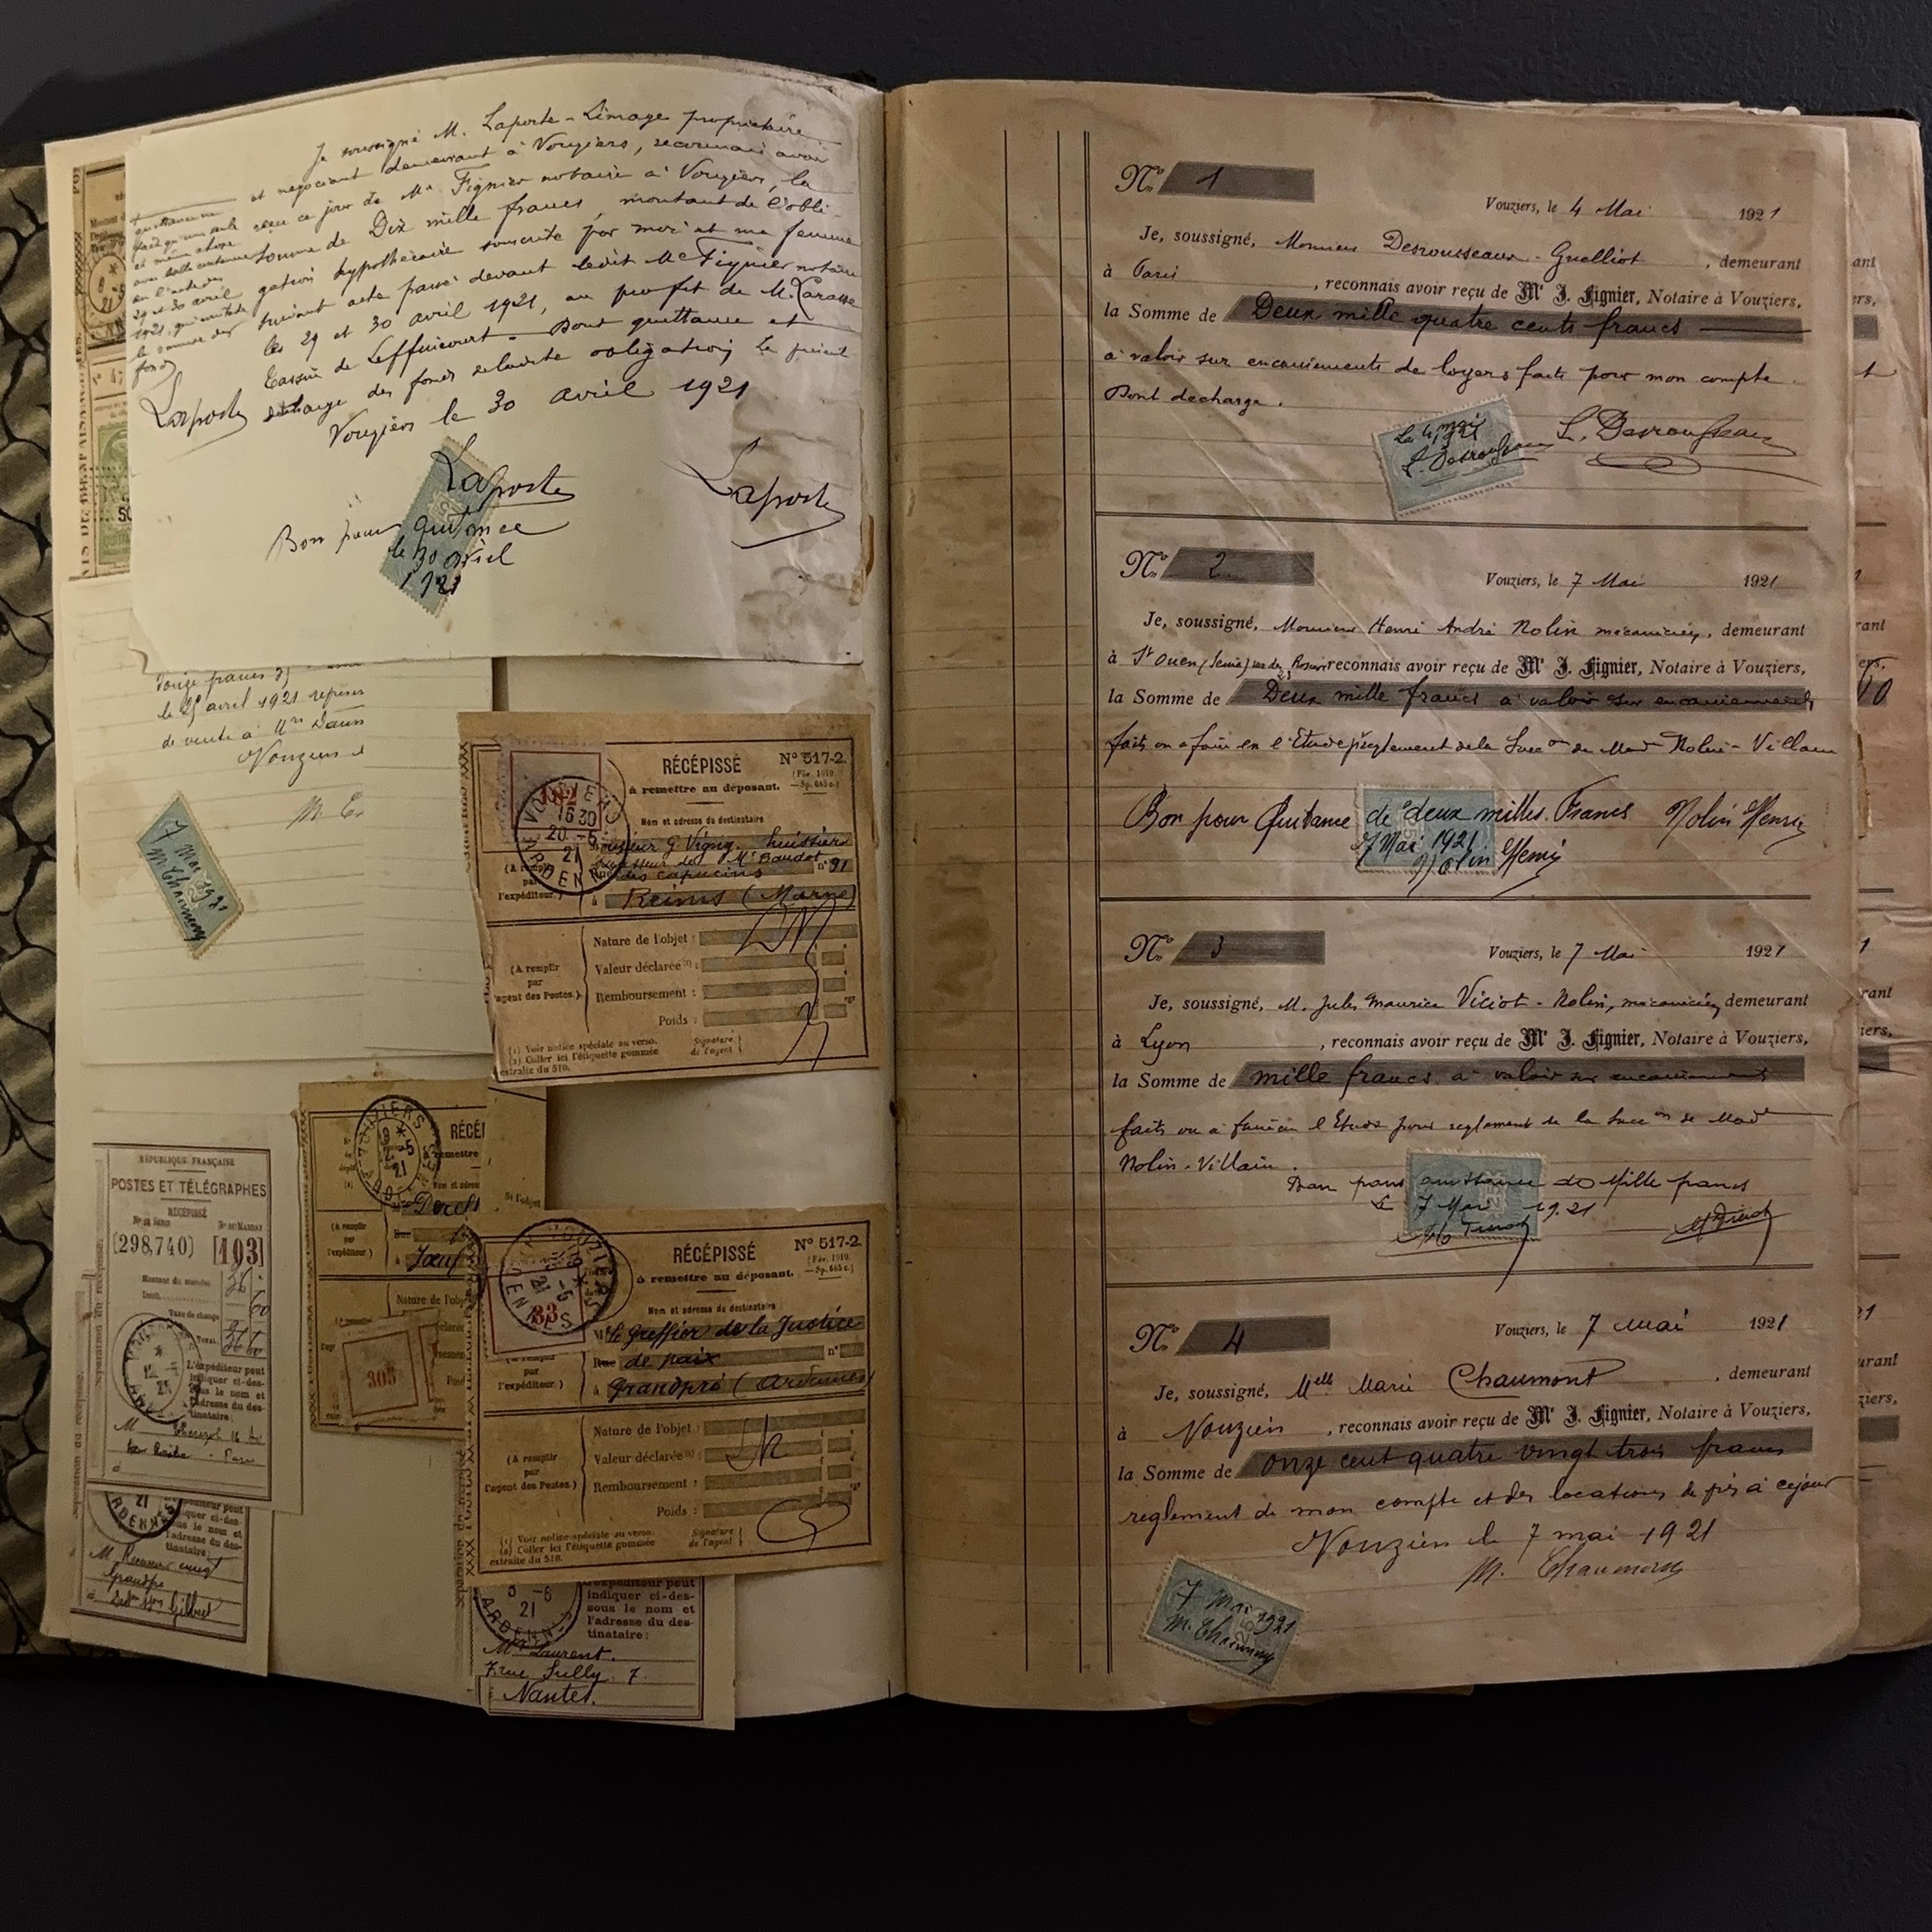 Je soussigné M. Laporte-Limage propriétaire
et négociant demeurant à Vouziers, reconnais avoir
reçu ce jour de Me Fignier notaire à Vouziers, la
somme de Dix mille francs, montant de l'obli-
gation hypothécaire souscrite par moi et ma femme
suivant acte passé devant ledit Me Fignier notaire
les 29 et 30 avril 1921, au profit de M. Carasse
de Leffincourt. Dont quittance et
décharge des fonds de ladite obligation, le présent
quittance ne
fait qu'une seule
et même chose
avec celle contenue
en l'acte des
29 et 30 avril
1921, qui constate
fonds
Laporte
Vouziers le 30 avril 1921
Laporte
Laporte
Bon pour quittance
le 30 avril
1921
francs
le 25 avril 1921
de vente à
Vouziers
7 Mai 1921
M. Chaumont
RÉCÉPISSÉ
N° 517-2.
(Fév. 1919.
à remettre au déposant.
Nom et adresse du destinataire
Monsieur G Vignig. huissier
successeur de Me Baudot
Rue des Capucins n° 91
à Reims (Marne)
(A remplir
par
l'expéditeur.)
VOUZIERS
16 30
20 -5
21
ARDENNES
Nature de l'objet :
Valeur déclarée (1) :
Remboursement :
Poids :
(A remplir
par
l'agent des Postes.)
(1) Voir notice spéciale au verso.
(2) Coller ici l'étiquette gommée
extraite du 510.
Signature
de l'agent
VOUZIERS
RÉCÉ
remettre
Nature de l'obj
305
RÉPUBLIQUE FRANÇAISE
POSTES ET TÉLÉGRAPHES
RÉCÉPISSÉ
N° DU MANDAT
[298,740) [193]
Montant du mandat
Taxe de change
TOTAL
L'expéditeur peut
indiquer ci-des-
sous le nom et
l'adresse du des-
tinataire :
M
Paris
à
RÉCÉPISSÉ
N° 517-2.
(Fév. 1919.
à remettre au déposant.
Nom et adresse du destinataire
M. le Greffier de la Justice
Rue de paix n°
à Grandpré (Ardennes)
83
Nature de l'objet :
Valeur déclarée (1) :
Remboursement :
Poids :
(A remplir
par
l'agent des Postes.)
(1) Voir notice spéciale au verso.
(2) Coller ici l'étiquette gommée
extraite du 510.
Signature
de l'agent
21
ARDENNES
M Receveur enregt
Grandpré
à
21
ARDENN
l'expéditeur peut
indiquer ci-des-
sous le nom et
l'adresse du des-
tinataire :
Mr Laurent.
7 rue Sully 7
à Nantes.
No 1
Vouziers, le 4 Mai 1921
Je, soussigné, Monsieur Desrousseaux-Guelliot, demeurant
à Paris, reconnais avoir reçu de Me J. Fignier, Notaire à Vouziers,
la Somme de Deux mille quatre cents francs
à valoir sur encaissements de loyers faits pour mon compte.
Dont décharge.
Le 4 mai
1921
L. Desrousseaux
L. Desrousseaux
No 2
Vouziers, le 7 Mai 1921
Je, soussigné, Monsieur Henri André Nolin mécanicien, demeurant
à St Ouen (Seine) rue des Rosiers 23 reconnais avoir reçu de Me J. Fignier, Notaire à Vouziers,
la Somme de Deux mille francs à valoir sur encaissements
faits ou à faire en l'Etude pr règlement de la Succon de Made Nolin-Villain
Bon pour Quitance de deux milles Francs Nolin Henri
7 Mai 1921
Nolin Henri
No 3
Vouziers, le 7 Mai 1921
Je, soussigné, M. Jules Maurice Viciot-Nolin, mécanicien, demeurant
à Lyon, reconnais avoir reçu de Me J. Fignier, Notaire à Vouziers,
la Somme de mille francs à valoir sur encaissements
faits ou à faire en l'Etude pour règlement de la Succon de Made
Nolin-Villain.
Bon pour quittance de Mille francs
Le 7 Mai 1921
No 4
Vouziers, le 7 mai 1921
Je, soussigné, Melle Marie Chaumont, demeurant
à Vouziers, reconnais avoir reçu de Me J. Fignier, Notaire à Vouziers,
la Somme de onze cent quatre vingt trois francs
règlement de mon compte et des locations de prés à ce jour
Vouziers le 7 mai 1921
M. Chaumont
7 Mai 1921
M. Chaumont